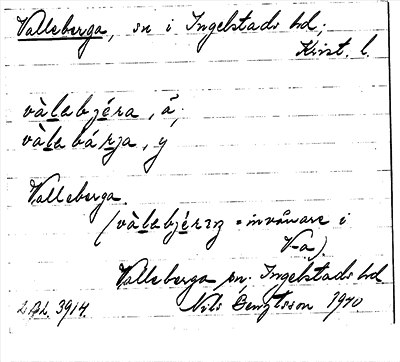 Valleberga, sn i Ingelstads hd;
Krist. l.
vàlabjéra, ä;
vàlabárja, y
Valleberga.
(vàlabjérıŋ = invånare i
V-a).
Valleberga sn, Ingelstads hd
3914. Nils Bengtsson 1970